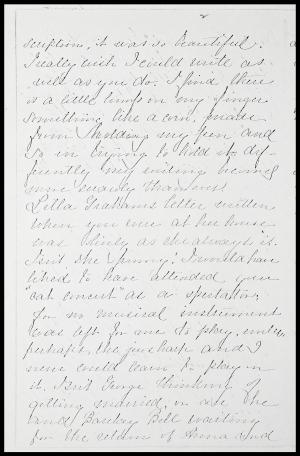 scription, it was so beautiful.
I really wish I could write as
well as you do. I find there
is a little lump on my finger
something like a corn, made
from holding my pen and
so in trying to hold it dif-
ferently my writing becomes
more scrawly than ever
Lella Grahams letter written
when you were at her house
was as she always is.
Isn't she funny! I would have
liked to have attended your
"cat concert" as a spectator,
for no musical instrument
was left for me to play, unless
perhaps, the jewsharp and I
never could learn to play on
it. Isn't George thinking of
getting married, or are he
and Bill waiting
for the return of Anna and